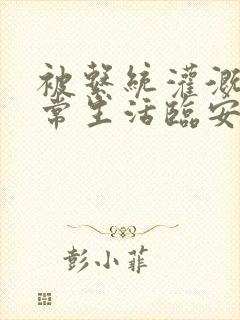 被繫統灌溉
常生活臨安
彭小菲